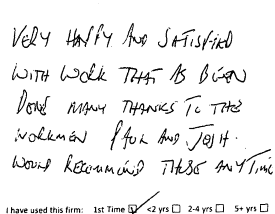 VERY HAPPY AND SATISFIED
WITH WORK THAT AS BEEN
DONE MANY THANKS TO THE
WORKMEN PAUL AND JOSH.
WOULD RECOMMEND THESE ANYTIME
I have used this firm: 1st Time ☑ <2 yrs ☐ 2-4 yrs ☐ 5+ yrs ☐